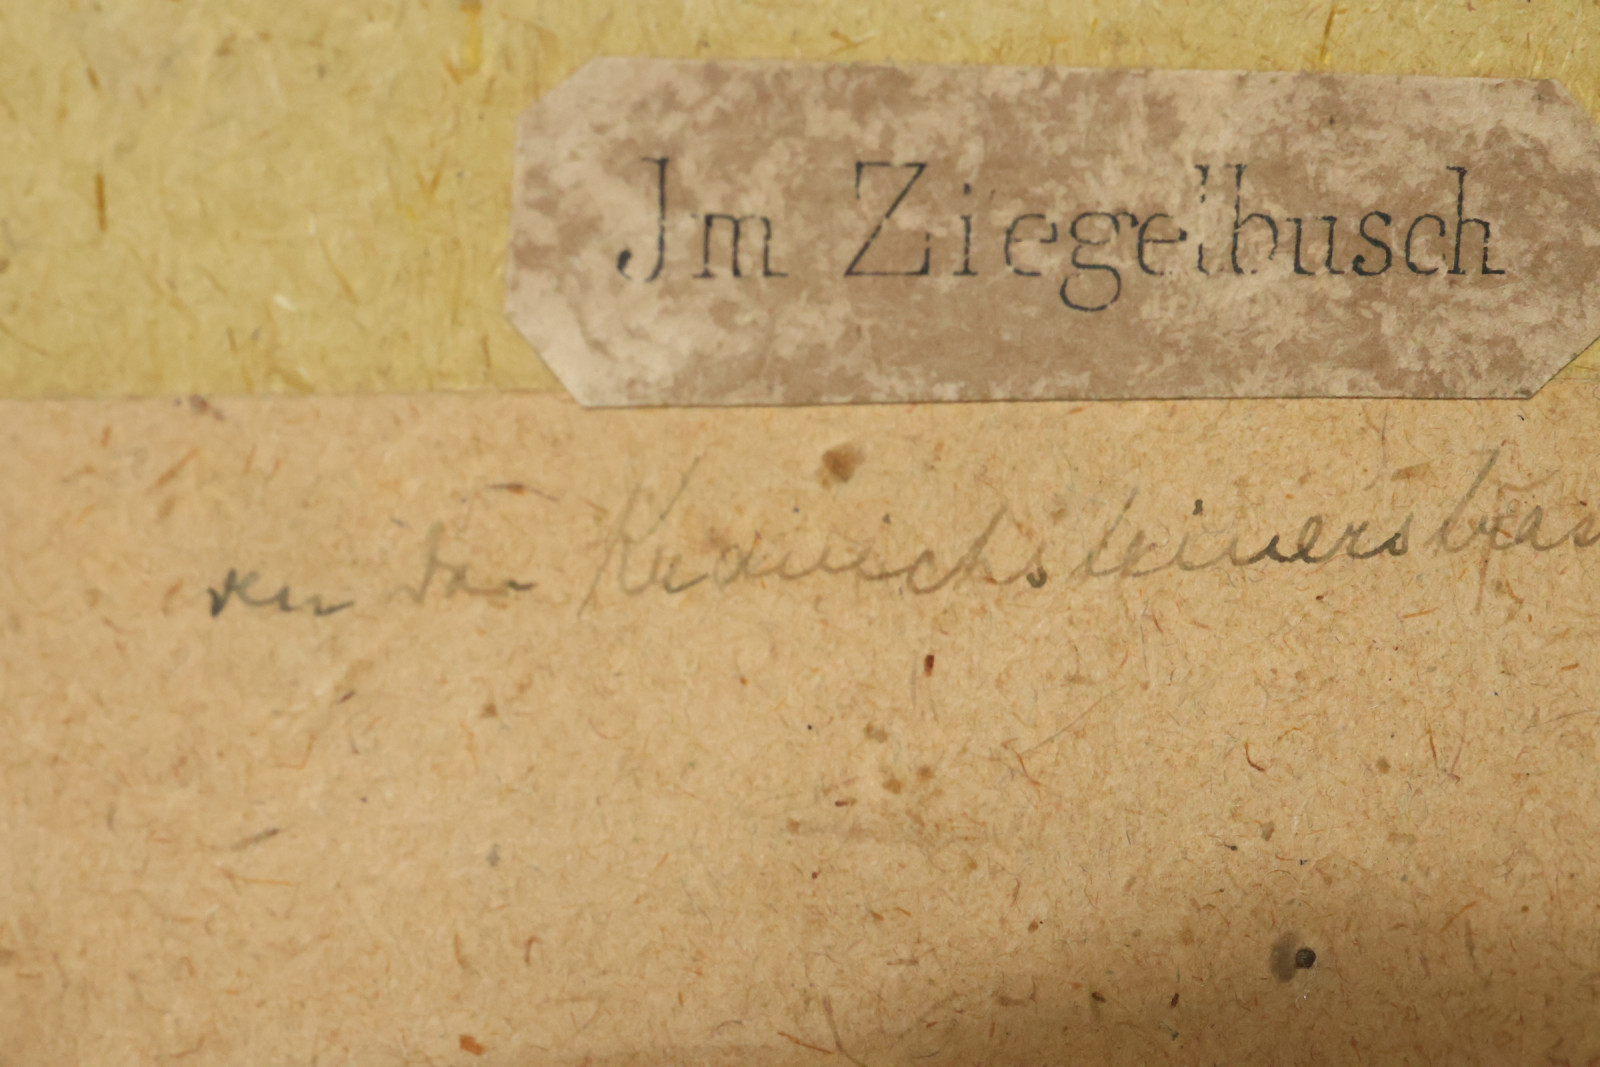 Jm Ziegelbusch
an der Kranichsteinerstras